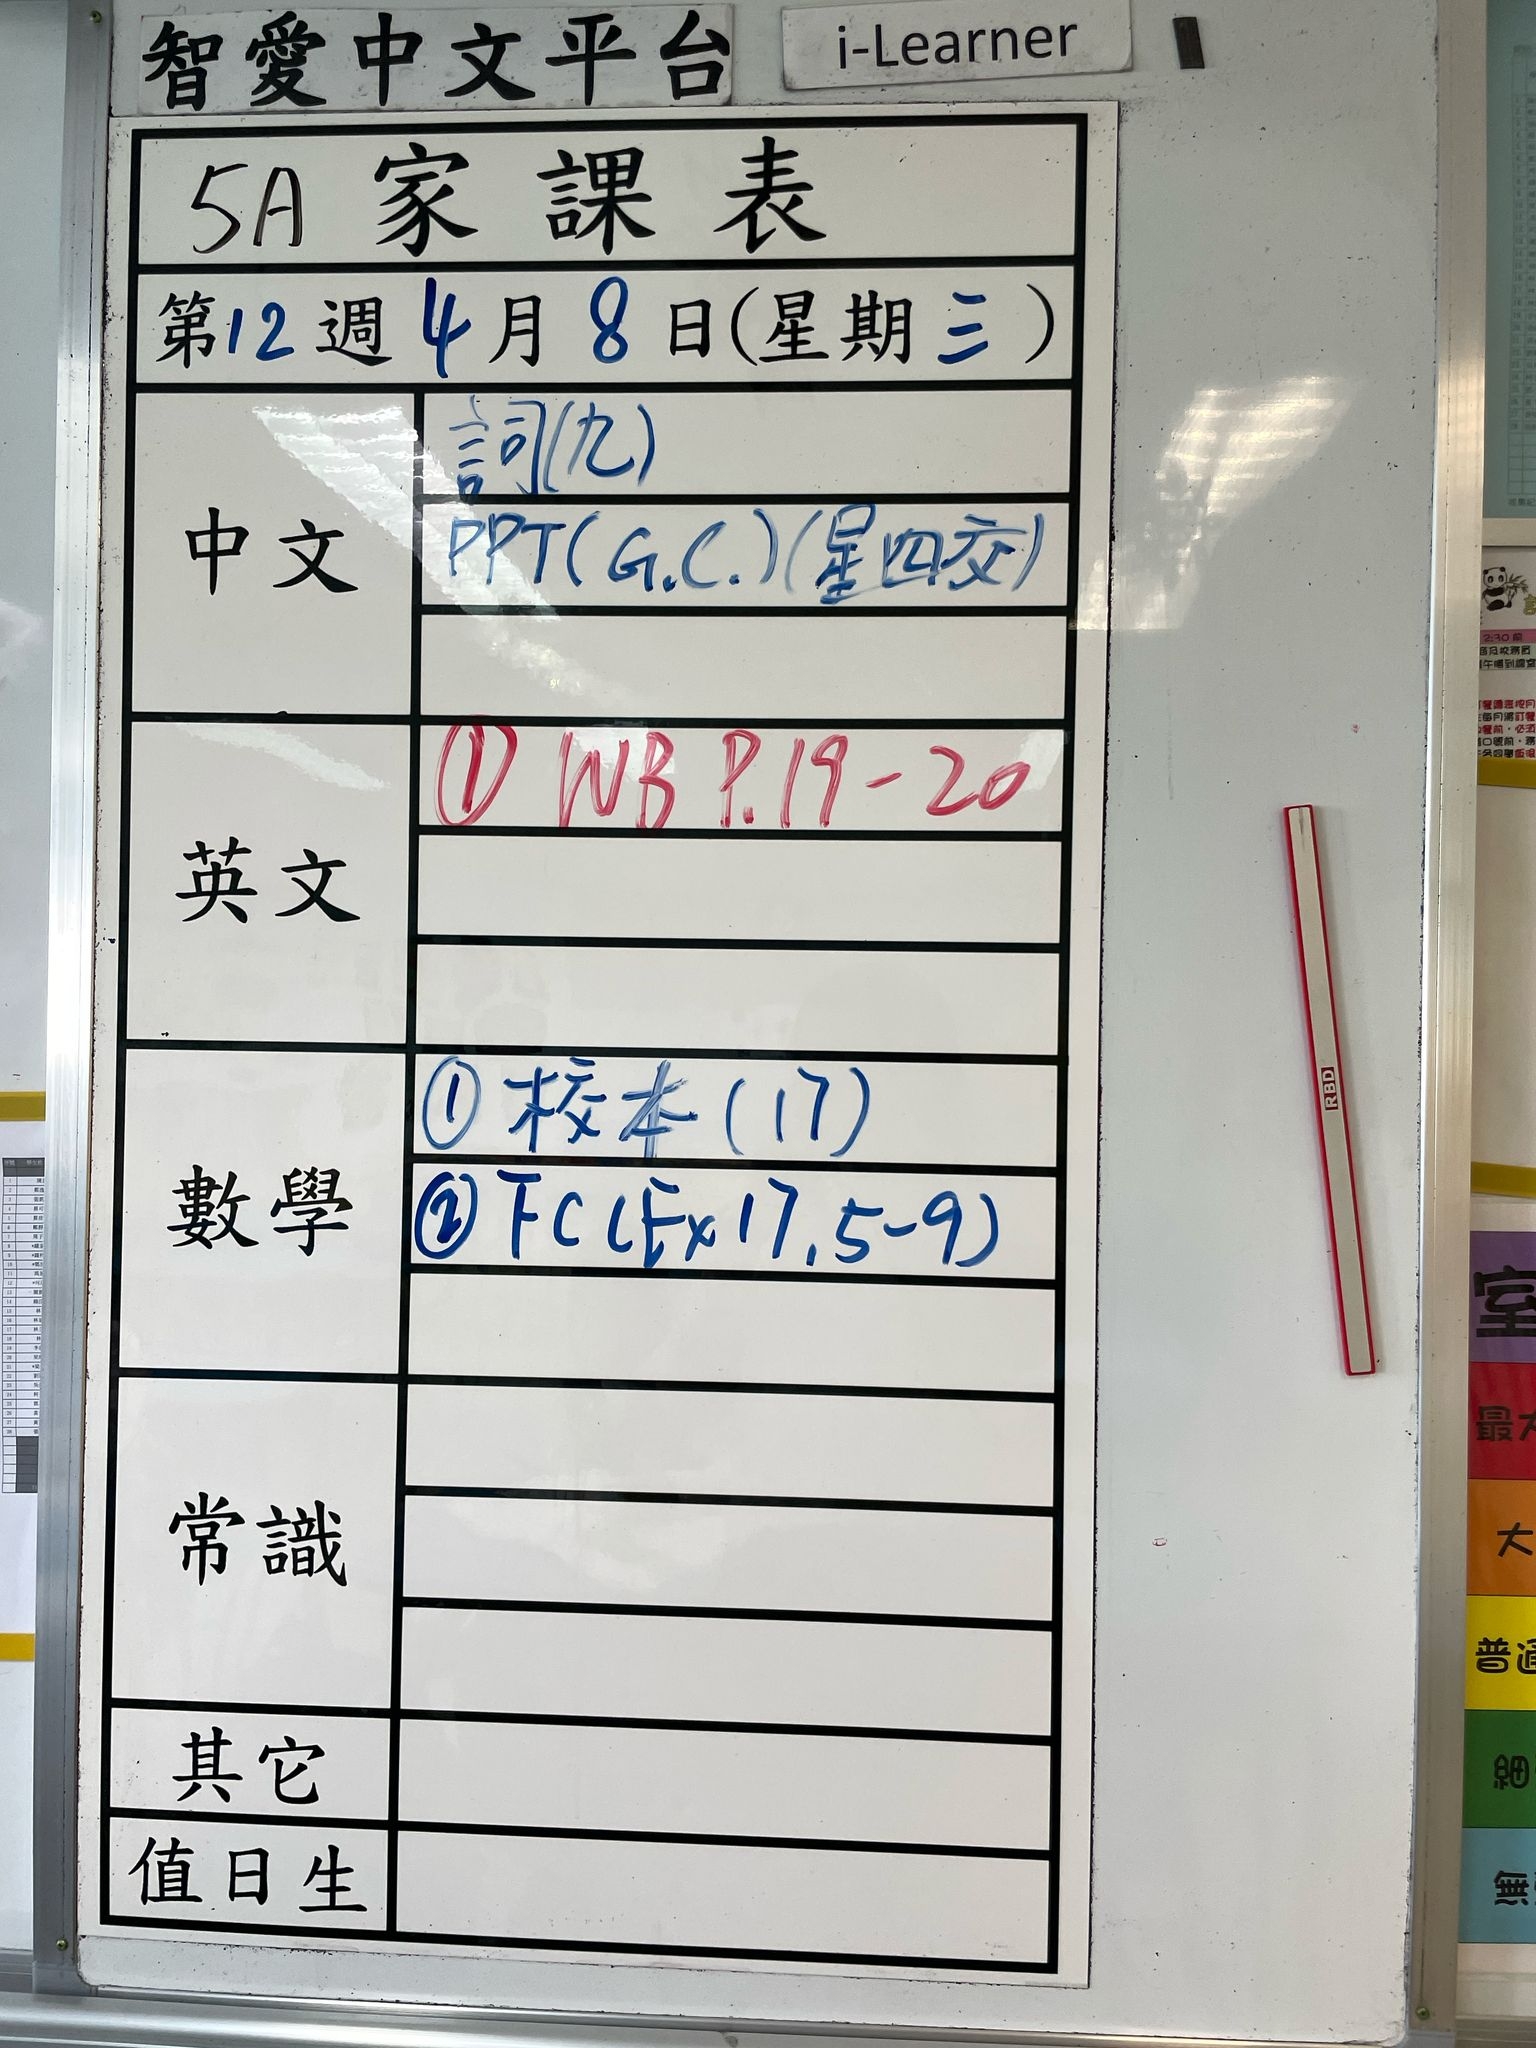 智愛中文平台 i-Learner
5A 家課表
第12週 4月8日(星期三)
中文
詞(九)
PPT(G.C.)(星四交)
英文
① WB P.19-20
數學
① 校本(17)
② FC(Ex17.5-9)
常識
其它
值日生
RBD
室
最大
大
普通
細
無
2:30前